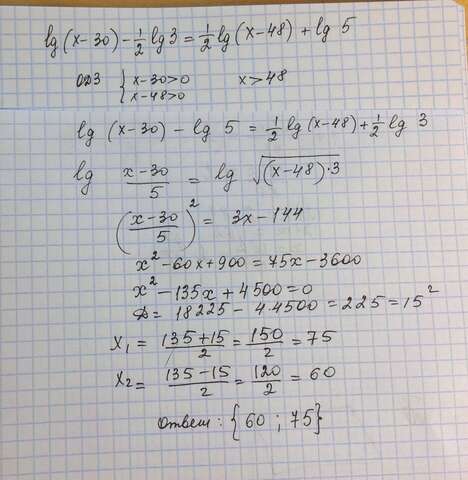 lg (x-30) - 1/2 lg 3 = 1/2 lg (x-48) + lg 5
ОДЗ { x-30>0 x>48
x-48>0
lg (x-30) - lg 5 = 1/2 lg (x-48) + 1/2 lg 3
lg (x-30)/5 = lg √((x-48)·3)
((x-30)/5)² = 3x-144
x²-60x+900 = 75x-3600
x²-135x+4500=0
D= 18225-4·4500=225=15²
x₁ = (135+15)/2 = 150/2 = 75
x₂ = (135-15)/2 = 120/2 = 60
Ответ: {60 ; 75}